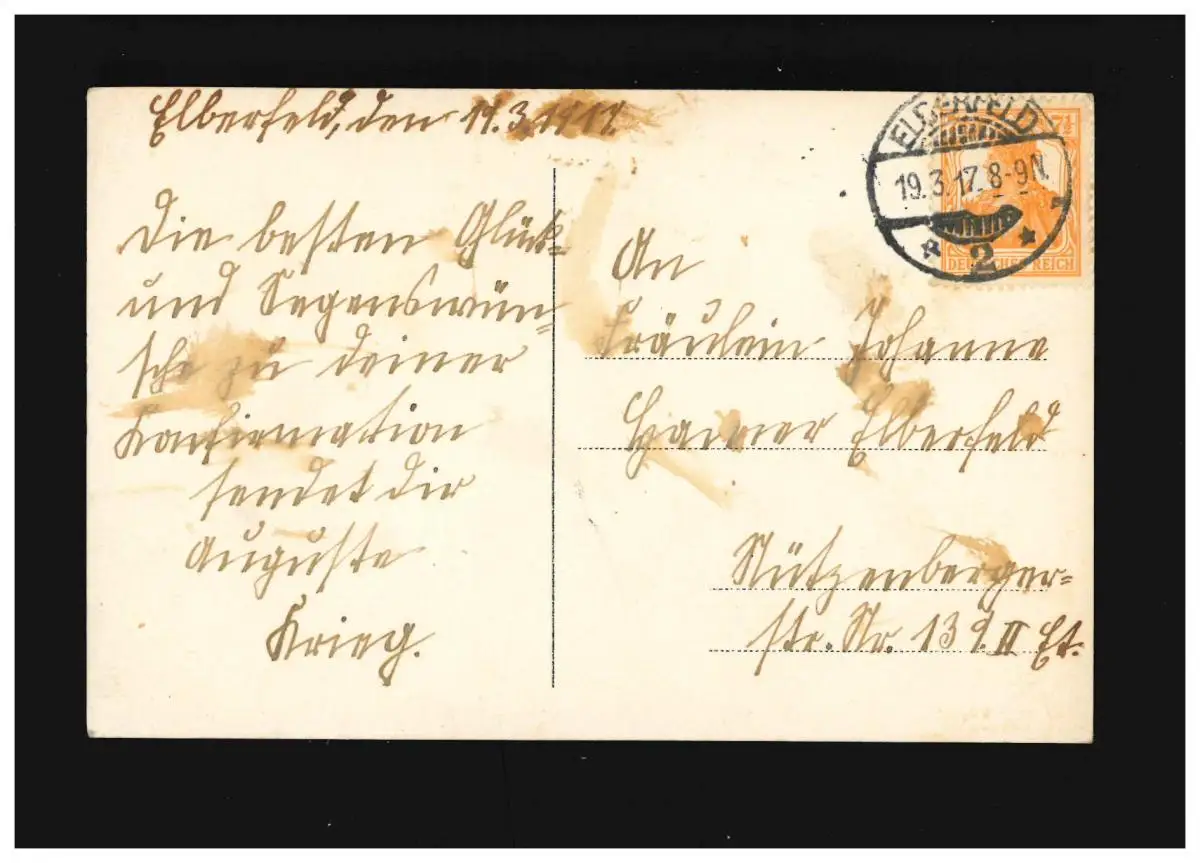 Elberfeld, den 19.3.1917.
Die besten Glück-
und Segenswün-
sche zu deiner
Konfirmation
sendet dir
Auguste
Krieg.
ELBERFELD
19.3.17.8-9N.
* 2 *
7½
DEUTSCHES REICH
An
Fräulein Johanne
Elberfeld
Nützenberger-
str. Nr. 139. II Et.